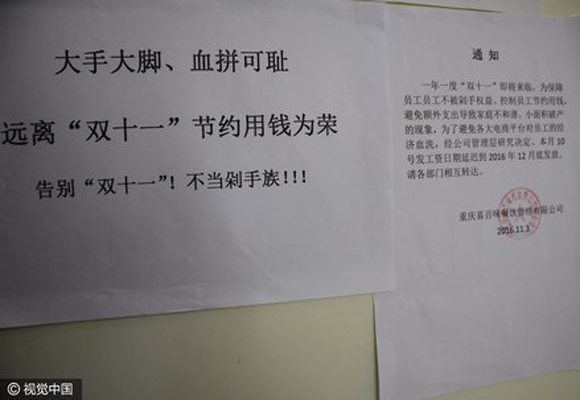 大手大脚、血拼可耻
远离“双十一”节约用钱为荣
告别“双十一”！不当剁手族!!!
通 知
一年一度“双十一”即将来临，为保障
员工员工不被剁手权益、控制员工节约用钱，
避免额外支出导致家庭不和谐、小面积破产
的现象，为了避免各大电商平台对员工的经
济血洗，经公司管理层研究决定、本月 10
号发工资日期延迟到 2016 年 12 月底发放，
请各部门相互转达。
重庆喜百味餐饮管理有限公司
2016.11.3
©视觉中国